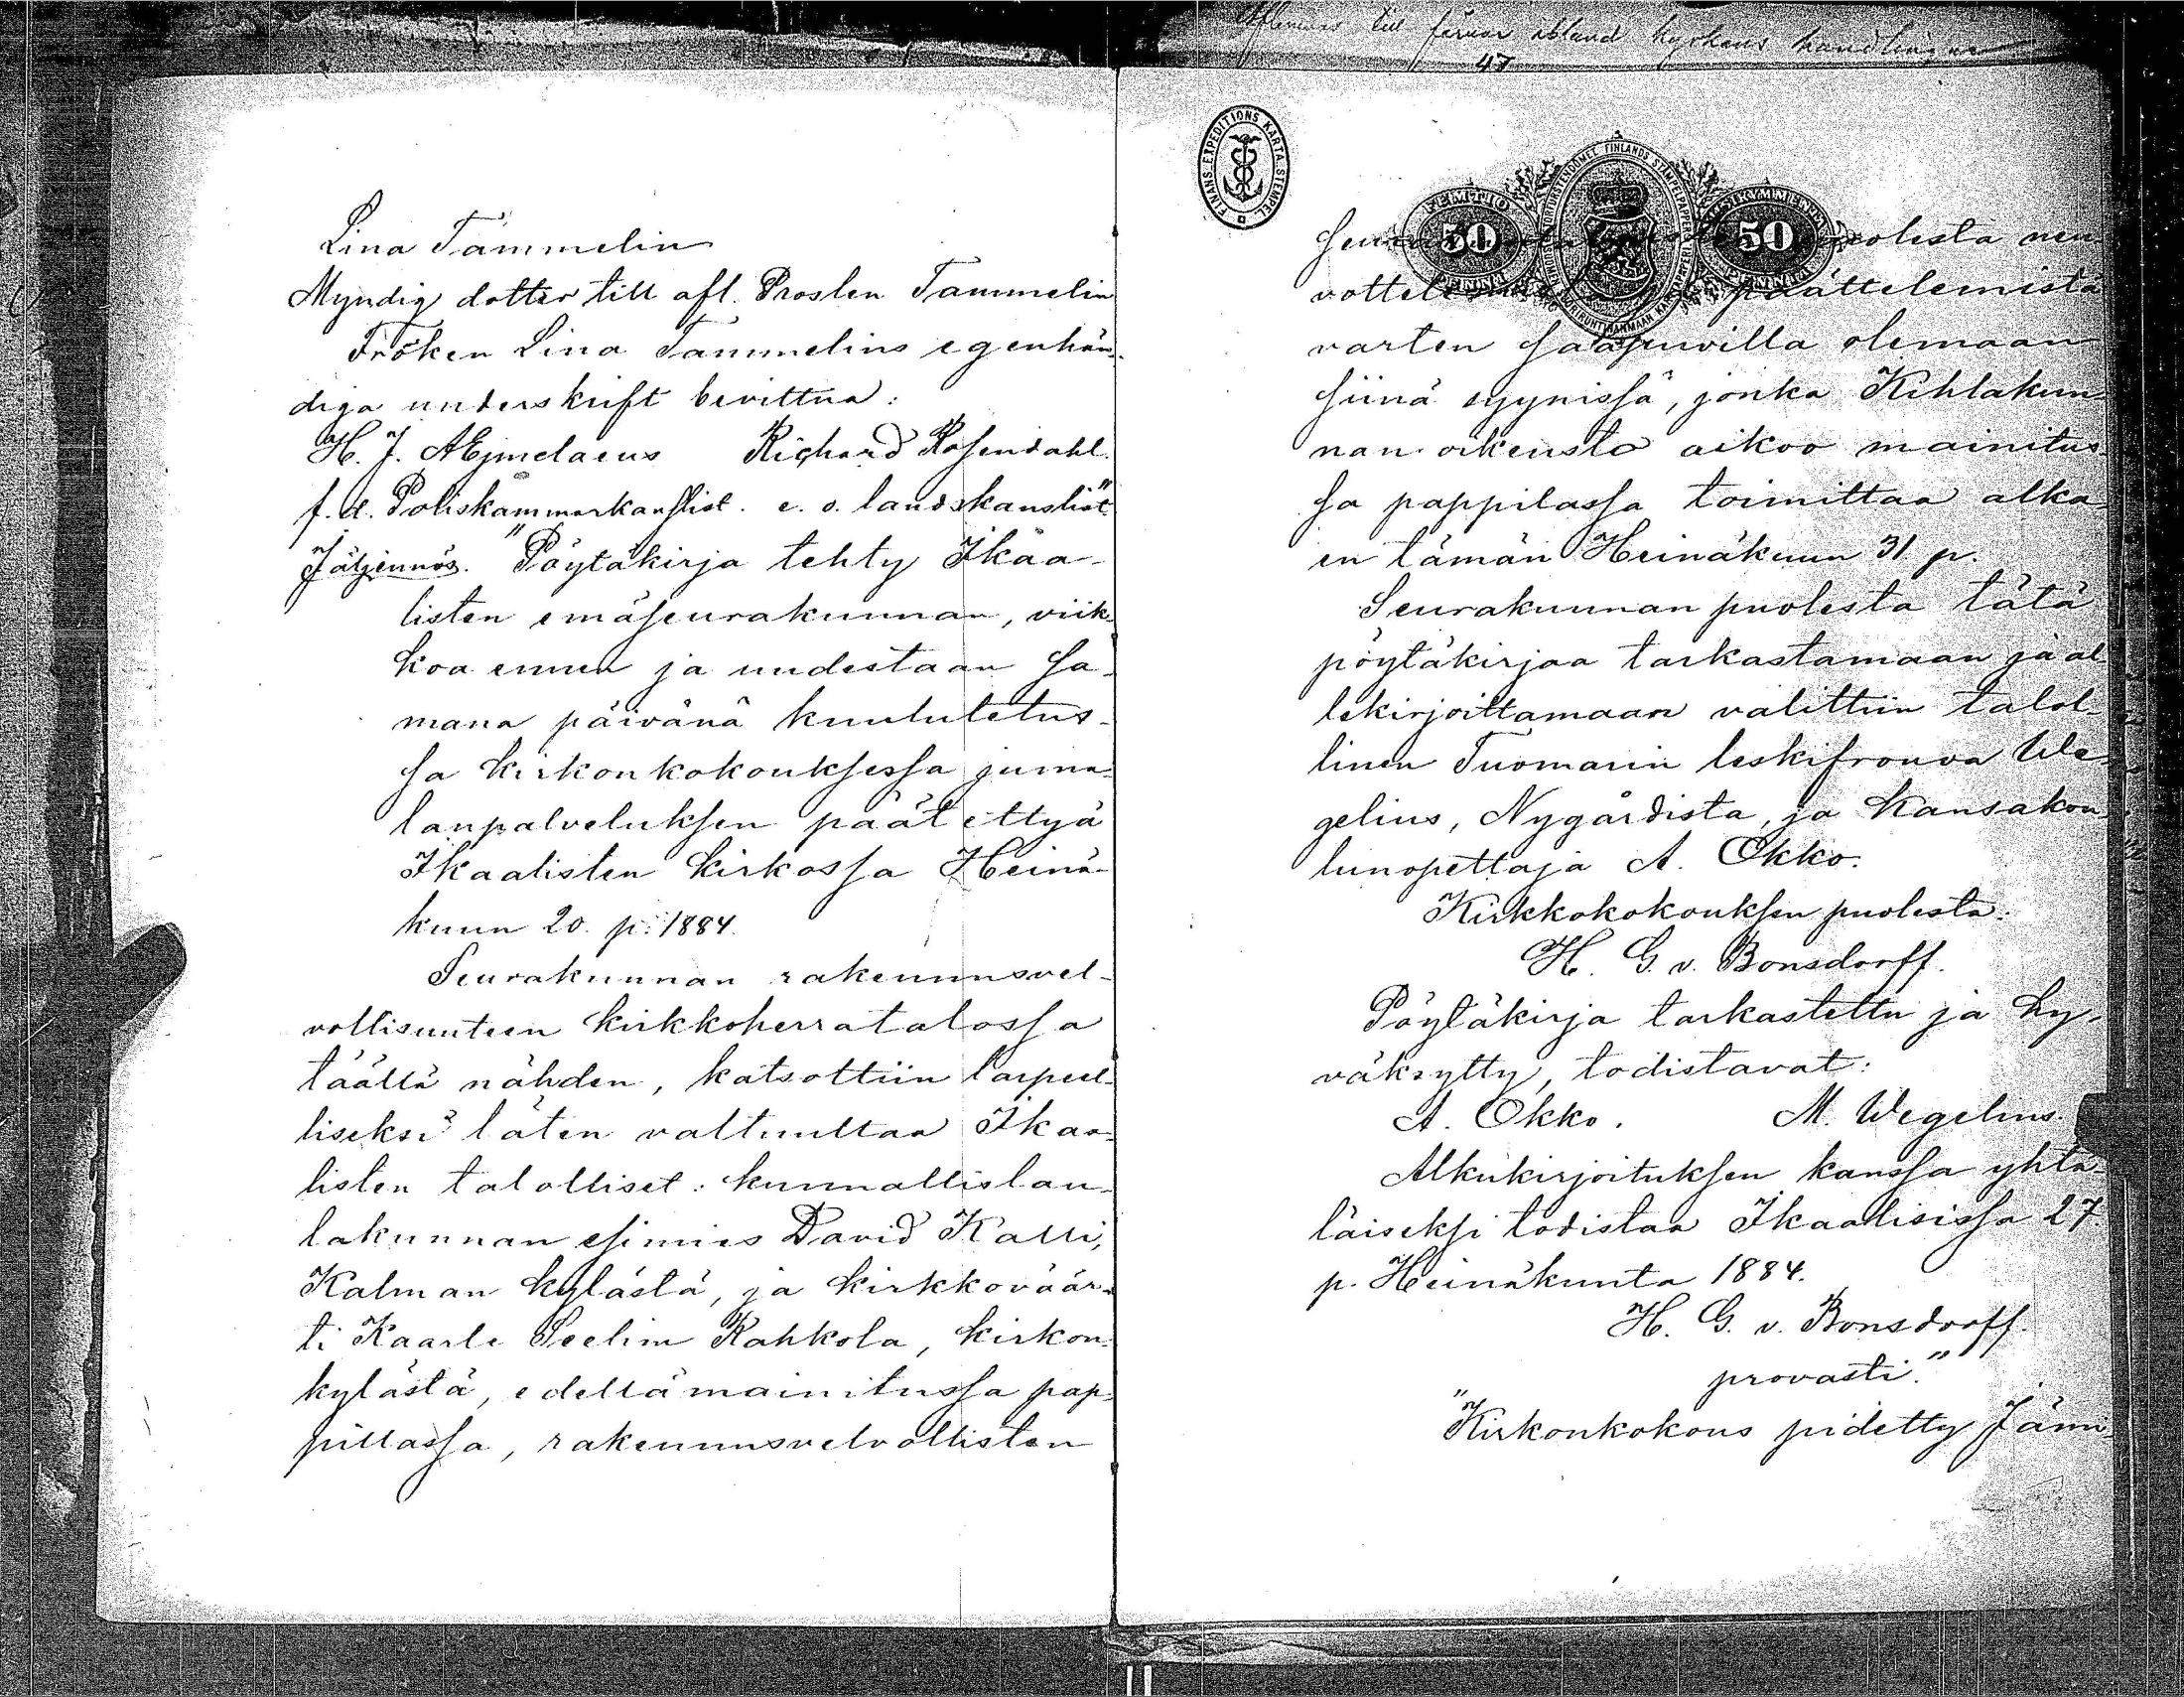 Lina Tammelin
Myndig dotter till afl. Prosten Tammelin
Fröken Lina Tammelins egenhän-
diga underskrift bevittna:
H. J. Aejmelaeus Richard Rosendahl.
f. d. Poliskammarkanslist. e. o. landskanslist"
Jäljennös. "Pöytäkirja tehty Ikaa-
listen emäseurakunnan, viik-
koa ennen ja uudestaan sa-
mana päivänä kuulutetus-
sa kirkonkokouksessa juma-
lanpalveluksen päätettyä
Ikaalisten kirkossa Heinä-
kuun 20. p. 1884.
Seurakunnan rakennusvel-
vollisuuteen kirkkoherratalossa
täällä nähden, katsottiin tarpeel-
liseksi täten valtuuttaa Ikaa-
listen talolliset: kunnallislau-
takunnan esimies David Kalli,
Kalman kylästä, ja kirkkoväär-
ti Kaarle Seelim Rahkola, kirkon-
kylästä, edellämainitussa pap-
pillassa, rakennusvelvollisten
till kyrkans handlingar
47
FINANS-EXPEDITIONS KARTA STEMPEL
50 50
puolesta neu-
päättelemistä
varten saapuvilla olemaan
siinä syynissä, jonka Kihlakun-
nan oikeusto aikoo mainitus-
sa pappilassa toimittaa alka-
en tämän Heinäkuun 31 p.
Seurakunnan puolesta tätä
pöytäkirjaa tarkastamaan ja al-
lekirjoittamaan valittiin talol-
linen Tuomarin leskifrouva We-
gelius, Nygårdista, ja kansakou-
lunopettaja A. Okko.
Kirkkokokouksen puolesta:
H. G. v. Bonsdorff.
Pöytäkirja tarkastettu ja hy-
väksytty, todistavat:
A. Okko. M. Wegelius.
Alkukirjoituksen kanssa yhtä-
läiseksi todistaa Ikaalisissa 27.
p. Heinäkuuta 1884.
H. G. v. Bonsdorff.
provasti."
"Kirkonkokous pidetty Jämi-